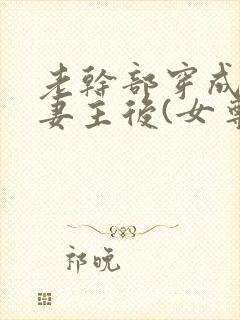 老幹部穿成
妻主後(女尊
祁晚